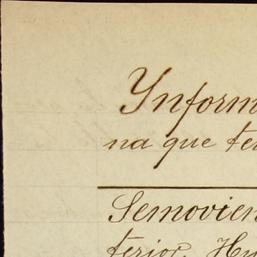 Ynform
na que te
Semovien
terior. Hu